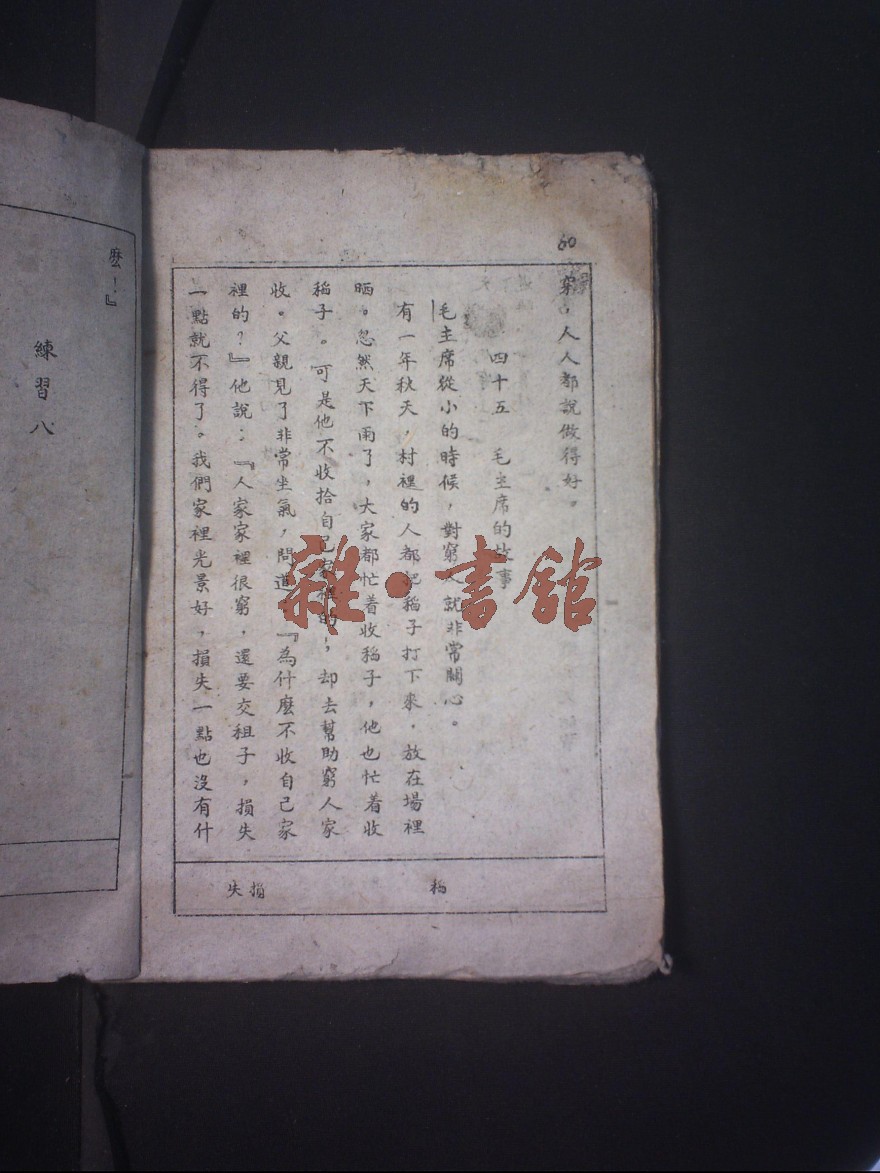 60
窮，人人都說做得好。
四十五 毛主席的故事
毛主席從小的時候，對窮人就非常關心。
有一年秋天，村裡的人都把稻子打下來，放在場裡
晒。忽然天下雨了，大家都忙着收稻子，他也忙着收
稻子。可是他不收拾自己家裡的，却去幫助窮人家
收。父親見了非常生氣，問道：『為什麼不收自己家
裡的？』他說：『人家家裡很窮，還要交租子，損失
一點就不得了。我們家裡光景好，損失一點也沒有什
稻
損失
麽！』
練習八
雜·書館